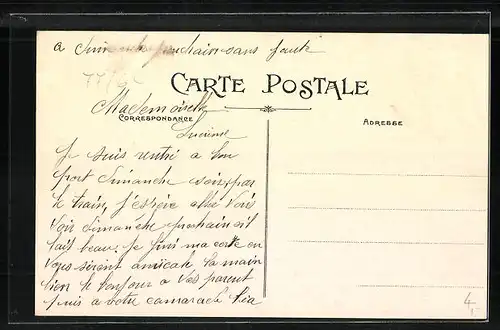 a Dimanche prochain sans faute
CARTE POSTALE
Mademoiselle
CORRESPONDANCE
ADRESSE
Lucienne
Je suis rentré a bon
port Dimanche soir par
le train, j'espère allé vous
voir dimanche prochain sil
fait beau. Je fini ma carte en
vous serent amicale la main
bien le bonjour a vos parent
puis a votre camarade Léa
4